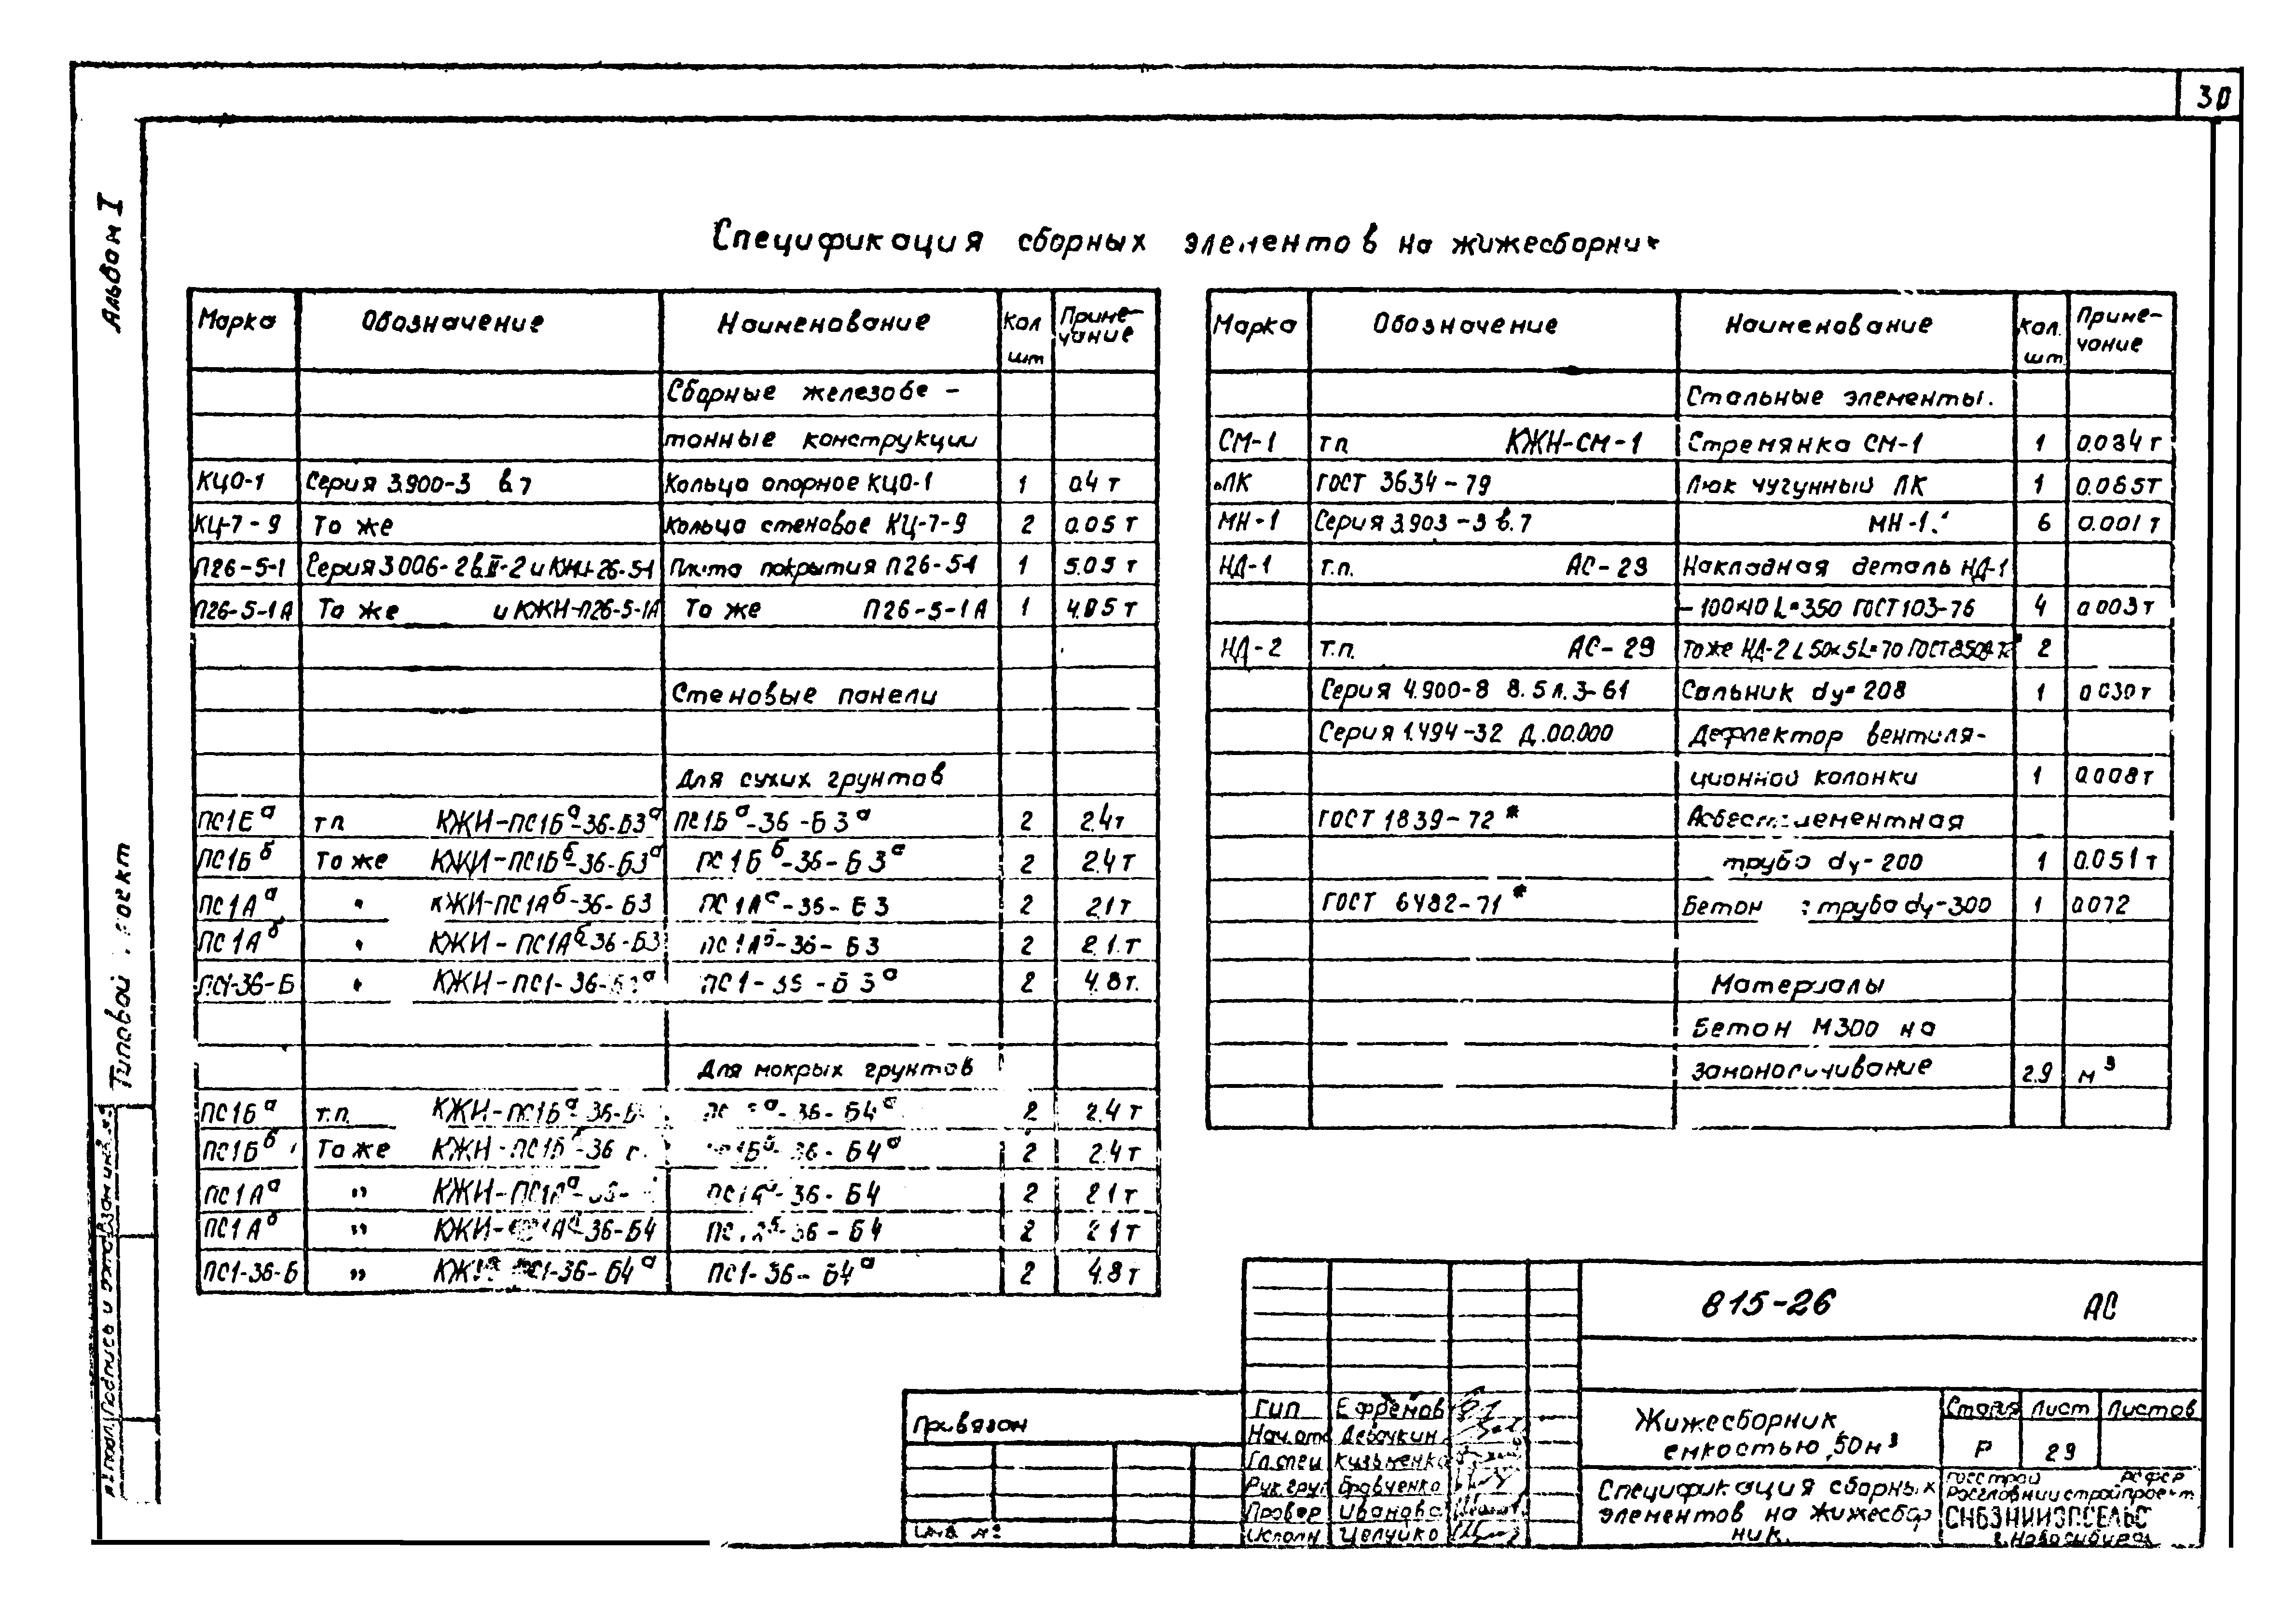 30
Альбом I
Типовой
Спецификация сборных элементов на жижесборник
Марка Обозначение Наименование Кол шт Примечание
Сборные железобе-
тонные конструкции
КЦО-1 Серия 3.900-3 в.7 Кольцо опорное КЦО-1 1 0.4 т
КЦ-7-9 То же Кольцо стеновое КЦ-7-9 2 0.05 т
П26-5-1 Серия 3.006-2 в.II-2 и КЖИ-26-5-1 Плита покрытия П26-5-1 1 5.05 т
П26-5-1А То же и КЖИ-П26-5-1А То же П26-5-1А 1 4.85 т
Стеновые панели
Для сухих грунтов
ПС1Бᵃ т.п. КЖИ-ПС1Бᵃ-36-Б3ᵃ ПС1Бᵃ-36-Б3ᵃ 2 2.4 т
ПС1Бᵇ То же КЖИ-ПС1Бᵇ-36-Б3ᵃ ПС1Бᵇ-36-Б3ᵃ 2 2.4 т
ПС1Аᵃ " КЖИ-ПС1Аᵇ-36-Б3 ПС1Аᵃ-36-Б3 2 2.1 т
ПС1Аᵇ " КЖИ-ПС1Аᵇ-36-Б3 ПС1Аᵇ-36-Б3 2 2.1 т
ПС1-36-Б " КЖИ-ПС1-36-Б3ᵃ ПС1-36-Б3ᵃ 2 4.8 т.
Для мокрых грунтов
ПС1Бᵃ т.п. КЖИ-ПС1Бᵃ-36-Б 2 2.4 т
ПС1Бᵇ То же КЖИ-ПС1Бᵇ-36 2 2.4 т
ПС1Аᵃ " КЖИ-ПС1Аᵃ-36- 2 2.1 т
ПС1Аᵇ " КЖИ-ПС1Аᵇ-36-Б4 2 2.1 т
ПС1-36-Б " КЖИ-ПС1-36-Б4ᵃ ПС1-36-Б4ᵃ 2 4.8 т
Марка Обозначение Наименование Кол. шт Примечание
Стальные элементы.
СМ-1 тп КЖН-СМ-1 Стремянка СМ-1 1 0.034 т
ЛК ГОСТ 3634-79 Люк чугунный ЛК 1 0.065т
МН-1 Серия 3.903-3 в.7 МН-1. 6 0.001 т
НД-1 т.п. АС-29 Накладная деталь НД-1
-100×10 L=350 ГОСТ 103-76 4 0.003 т
НД-2 т.п. АС-29 То же НД-2 ∠50×5 L=70 ГОСТ 8509-72* 2
Серия 4.900-8 в.5 л.3-61 Сальник dу=208 1 0.030 т
Серия 1.494-32 Д.00.000 Дефлектор вентиля-
ционной колонки 1 0.008 т
ГОСТ 1839-72* Асбестоцементная
труба dу-200 1 0.051 т
ГОСТ 6482-71* Бетон труба dу-300 1 0.072
Материалы
Бетон М300 на
замоноличивание 2.9 м³
815-26 АС
Привязан
Инв №
Гип Ефремов
Нач.отд Девочкин
Гл.спец Кузьменко
Рук.груп Бравченко
Провер Иванова
Исполн Целуйко
Жижесборник,
емкостью 50м³
Стадия Лист Листов
Р 29
Спецификация сборных
элементов на жижесбор
ник.
Госстрой РСФСР
Росглавниистройпроект
СИБЗНИИЭПСЕЛЬС
г.Новосибирск
подл. Подпись и дата Взам.инв.№